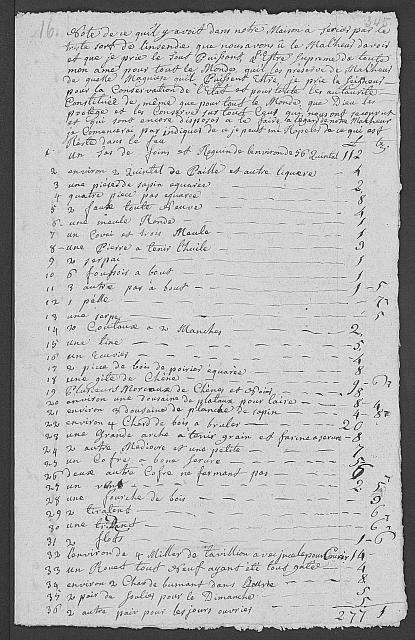 16.
345
Note de ce quil y avoit dans notre Maison a serier par le
triste sort de linsendie que nous avons u le Malheur davoir
et que je prie le tout Puissant l'Estre Supreme de toute
mon ame pour tout le Monde quil les preserve de Malheur
de quelle Magniere quil Puissent Estre je prie le Seigneur
pour la Conservation de l'Etat et pour toute les autaurité
Constituée de même que pour tout le Monde que Dieu les
protege et les Conserve sur tout Ceux qui nous on secourut
et qui sont ancore disposes a le faire a legard de notre Malheur
je Comenserai par indiquer de ce je peut mi Rapeler de ce qui est
Reste dans le feu
1 un tas de foins et Reguinde lenviron de 56 Quintel 112
2 environ 2 Quintel de Paille et autre liquere 4
3 une piese de sapin equarée 2
4 quatre pieu pas equarée 8
5 2 faux toute neuve 4
6 une meule Ronde 1
7 un Covei et trois Meule 1
8 une Pierre a tenir l'huile 9
9 2 serpai 1
10 6 foussois a bout 1
11 3 autre pas a bout 1-5
12 1 pelle 7
13 une serpe 5
14 2 Coutaux a 2 Manches 2
15 une tine 5
16 un Cuvier 4
17 2 piece de bois de poirier equarée 8
18 une gite de Chêne
19 Plusieurs Morceaux de Chênes et 9-6
20 environ une dousaine de plataux pour laire 8
21 environ 3 dousaine de planche de sapin 4
22 environ 4 Chard de bois a bruler 20
23 une Grande arche a tenir grain et farine a serure 8
24 2 autre Mediocre et une petite 7
25 un Cofre bone serure 5
26 deux autre Cofre ne fermant pas 6
27 un 2 5
28 une fourche de bois 5
29 2 tiralent 9
30 une 1-6
31 2 1-6
32 lenviron de 4 Miller de Tavillion avec pour Couvrir 14
33 un Rouet tout neuf ayant ete tout gaté 4
34 environ 2 Char de bumant dans 8
35 2 pair de soulies pour le Dimanche 5
36 2 autre pair pour les jours ouvries 5
277 1